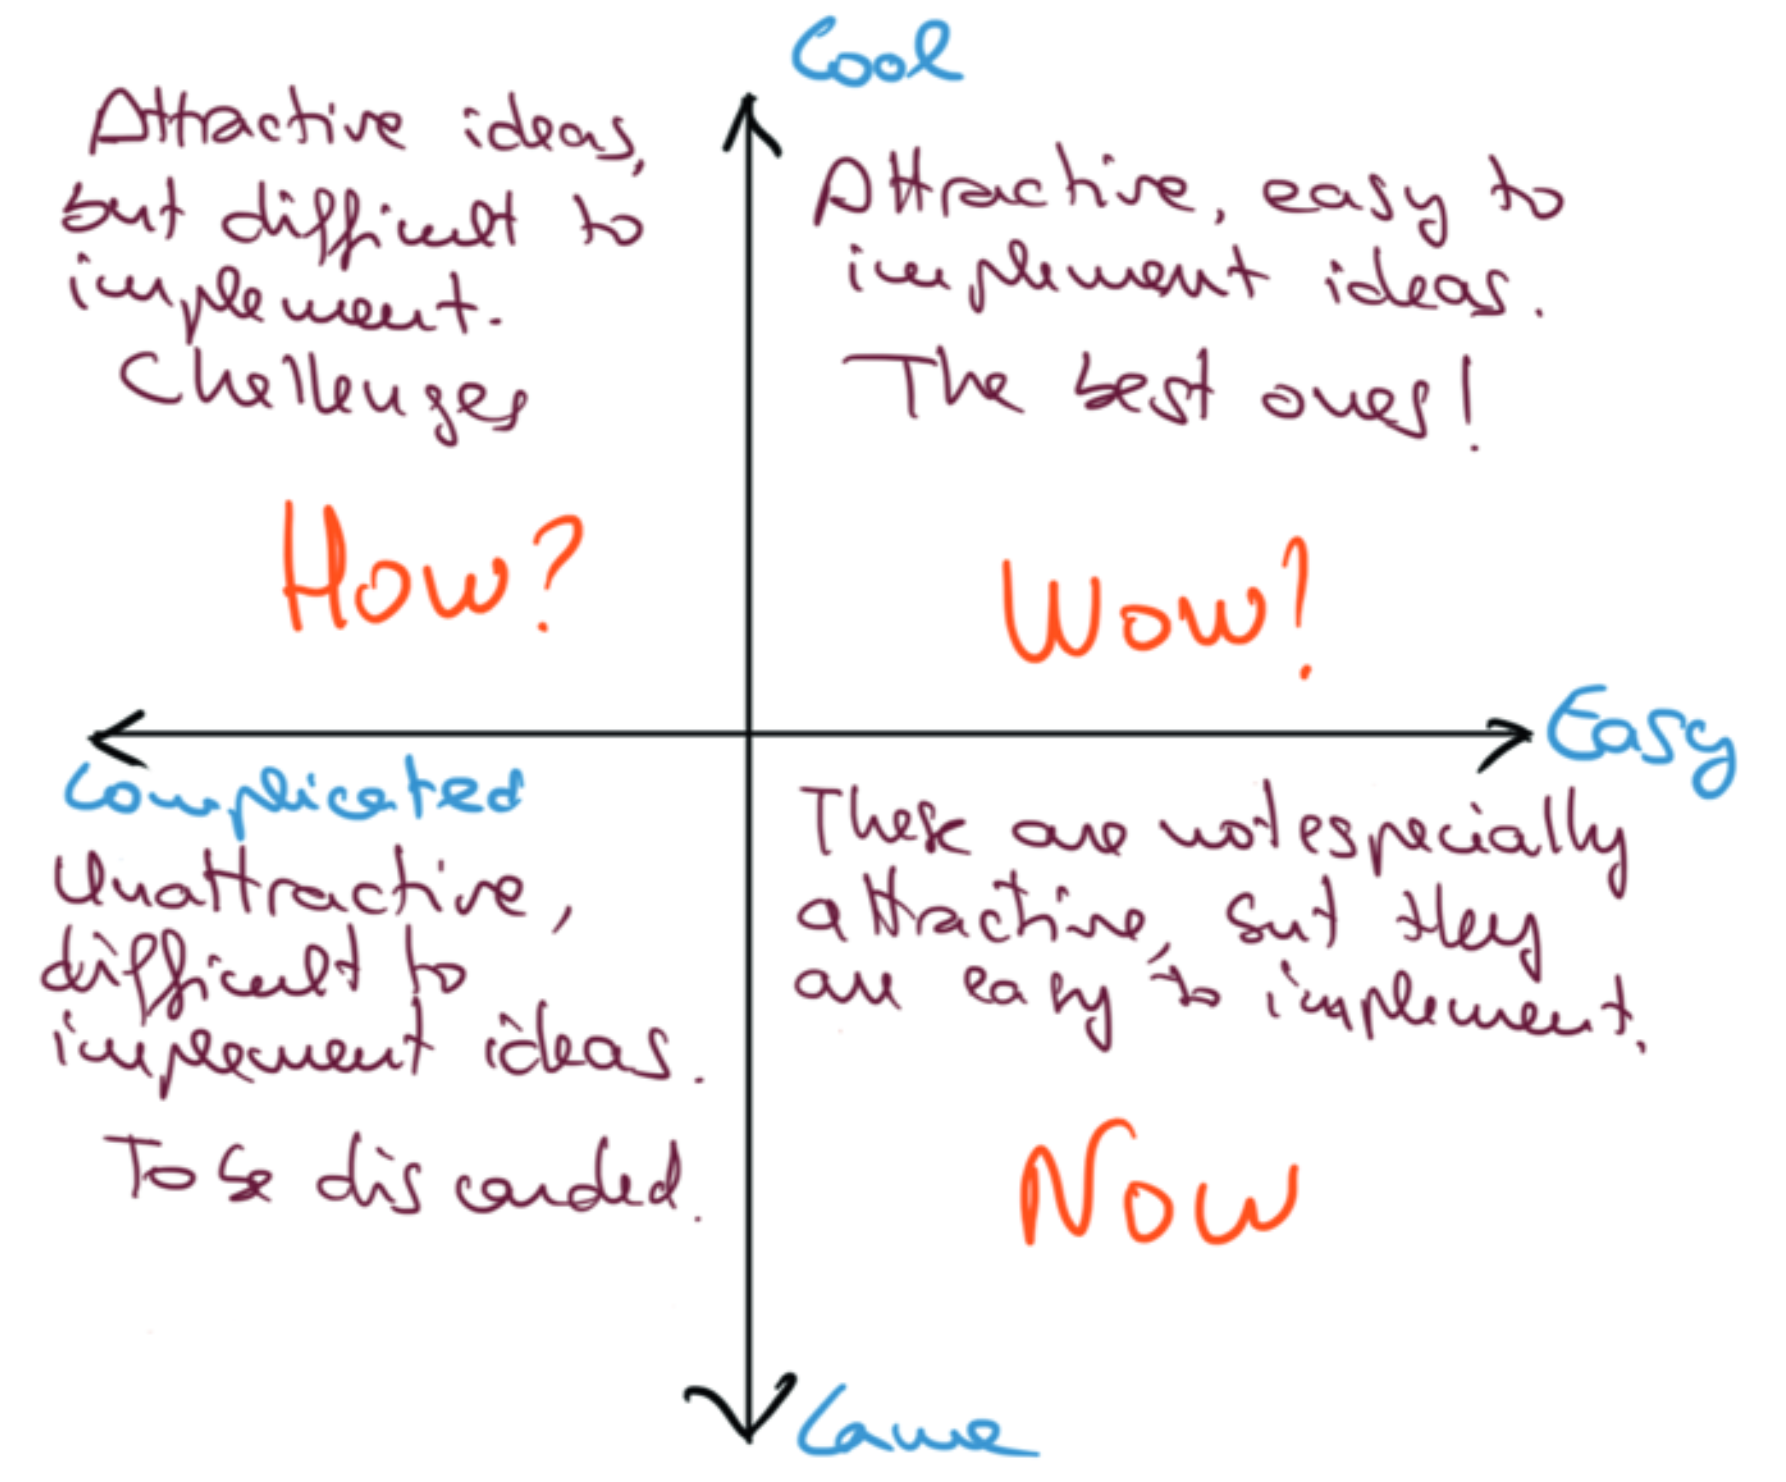 Cool
Attractive ideas,
but difficult to
implement.
Challenges
How?
Attractive, easy to
implement ideas.
The best ones!
Wow?
Easy
Complicated
Unattractive,
difficult to
implement ideas.
To be discarded.
These are not especially
attractive, but they
are easy to implement.
Now
Lame